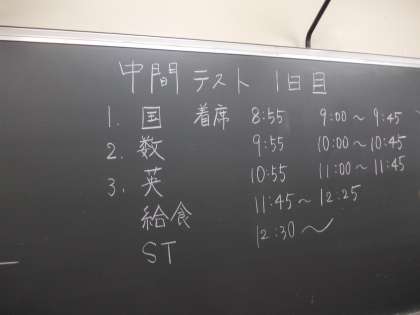 中間テスト 1日目
1. 国 着席 8:55 9:00～9:45
2. 数 9:55 10:00～10:45
3. 英 10:55 11:00～11:45
給食 11:45～12:25
ST 12:30～